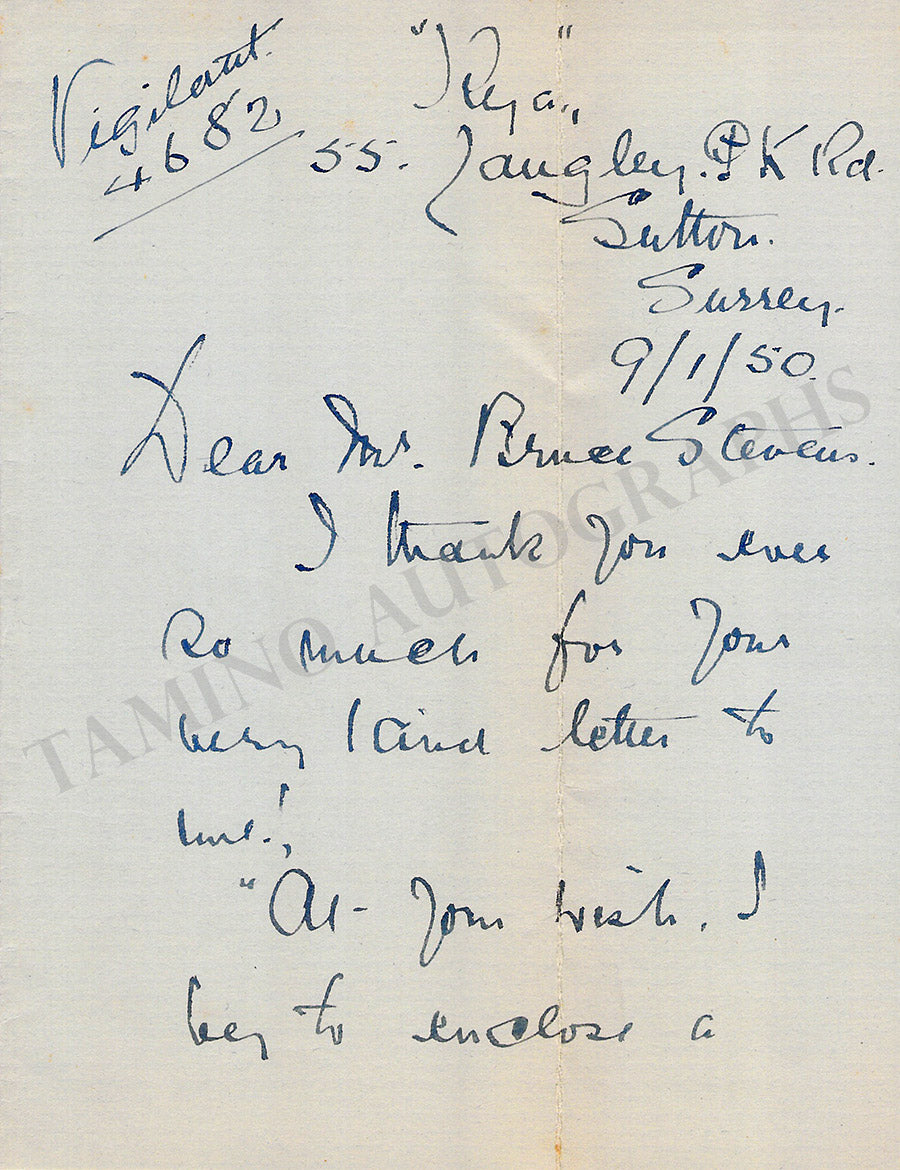 Vigilant.
4682
"Rya"
55. Langley. PK Rd.
Sutton.
Surrey.
9/1/50.
Dear Mr. Bruce Stevens.
I thank you ever
so much for your
very kind letter to
me!,
"At- your wish, I
beg to enclose a
TAMINO AUTOGRAPHS